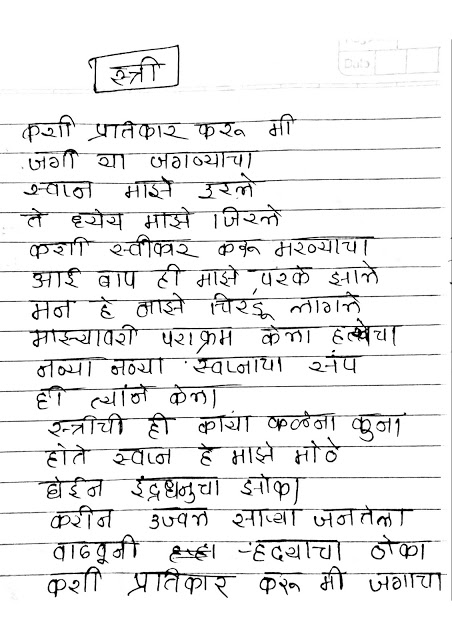 स्त्री
Date
कशी प्रातिकार करू मी
जगी या जगण्याचा
स्थान माझे उरले
ते ध्येय माझे जिरले
कशी स्वीकार करू मरण्याचा
आई बाप ही माझे परके झाले
मन हे माझे चिरडू लागले
माझ्यावरी पराक्रम केला हत्येचा
नव्या नव्या स्वप्नाचा संप
ही त्याने केला
स्त्रीची ही काया कळेना कुना
होते स्वप्न हे माझे मोठे
होईन इंद्रधनुचा झोका
करीन उज्वल साऱ्या जनतेला
वाढवूनी हृदयाचा ठोका
कशी प्रातिकार करू मी जगाचा